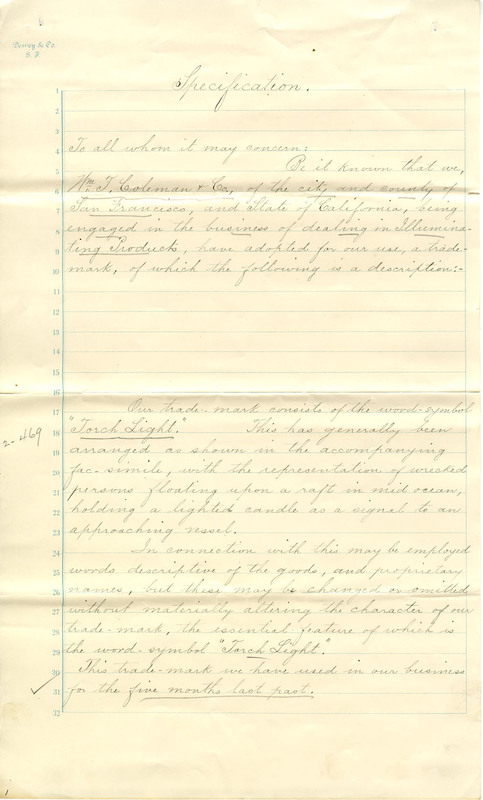 6
Dewey & Co.
S. F.
Specification.
1
2
3
4 To all whom it may concern:
5 Be it known that we,
6 Wm T. Coleman & Co., of the city, and county of
7 San Francisco, and State of California, being
8 engaged in the business of dealing in Illumina-
9 ting Products, have adopted for our use, a trade-
10 mark, of which the following is a description:-
11
12
13
14
15
16
17 Our trade-mark consists of the word-symbol
18 "Torch Light." This has generally been
2-469
19 arranged as shown in the accompanying
20 fac-simile, with the representation of wrecked
21 persons floating upon a raft in mid ocean,
22 holding a lighted candle as a signal to an
23 approaching vessel.
24 In connection with this may be employed
25 words descriptive of the goods, and proprietary
26 names, but these may be changed or omitted
27 without materially altering the character of our
28 trade-mark, the essential feature of which is
29 the word-symbol "Torch Light".
30 This trade-mark we have used in our business
31 for the five months last past.
32